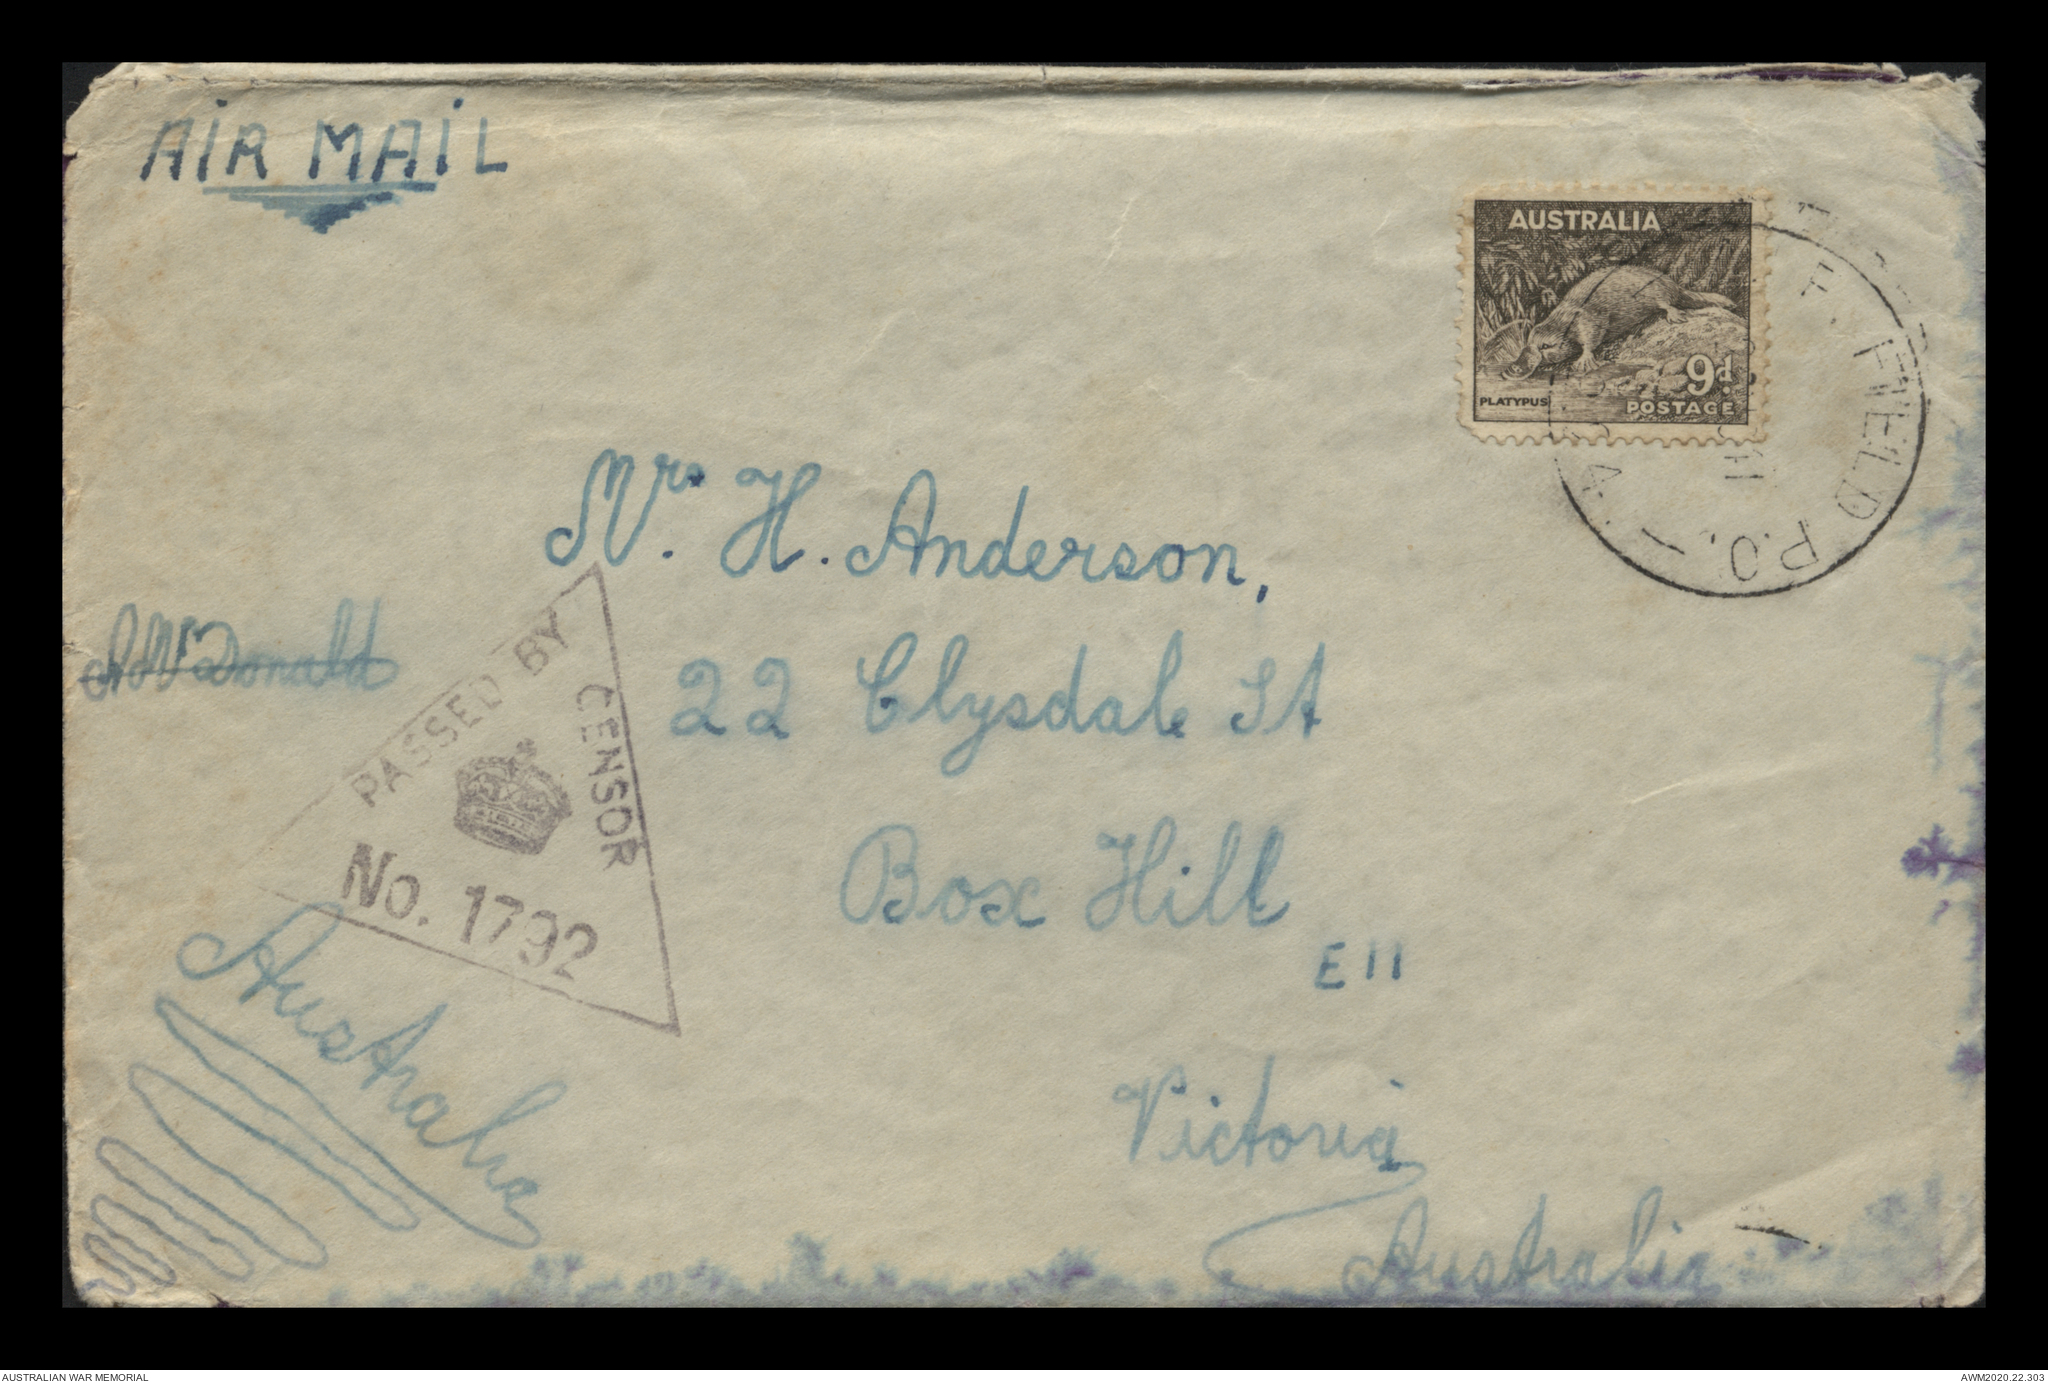 AIR MAIL
AUSTRALIA
PLATYPUS
9d.
POSTAGE
A.I.F. FIELD P.O.
Mr. H. Anderson,
McDonald
22 Clysdale St
PASSED BY CENSOR
No. 1792
Box Hill
E11
Australia
Victoria
Australia
AUSTRALIAN WAR MEMORIAL
AWM2020.22.303